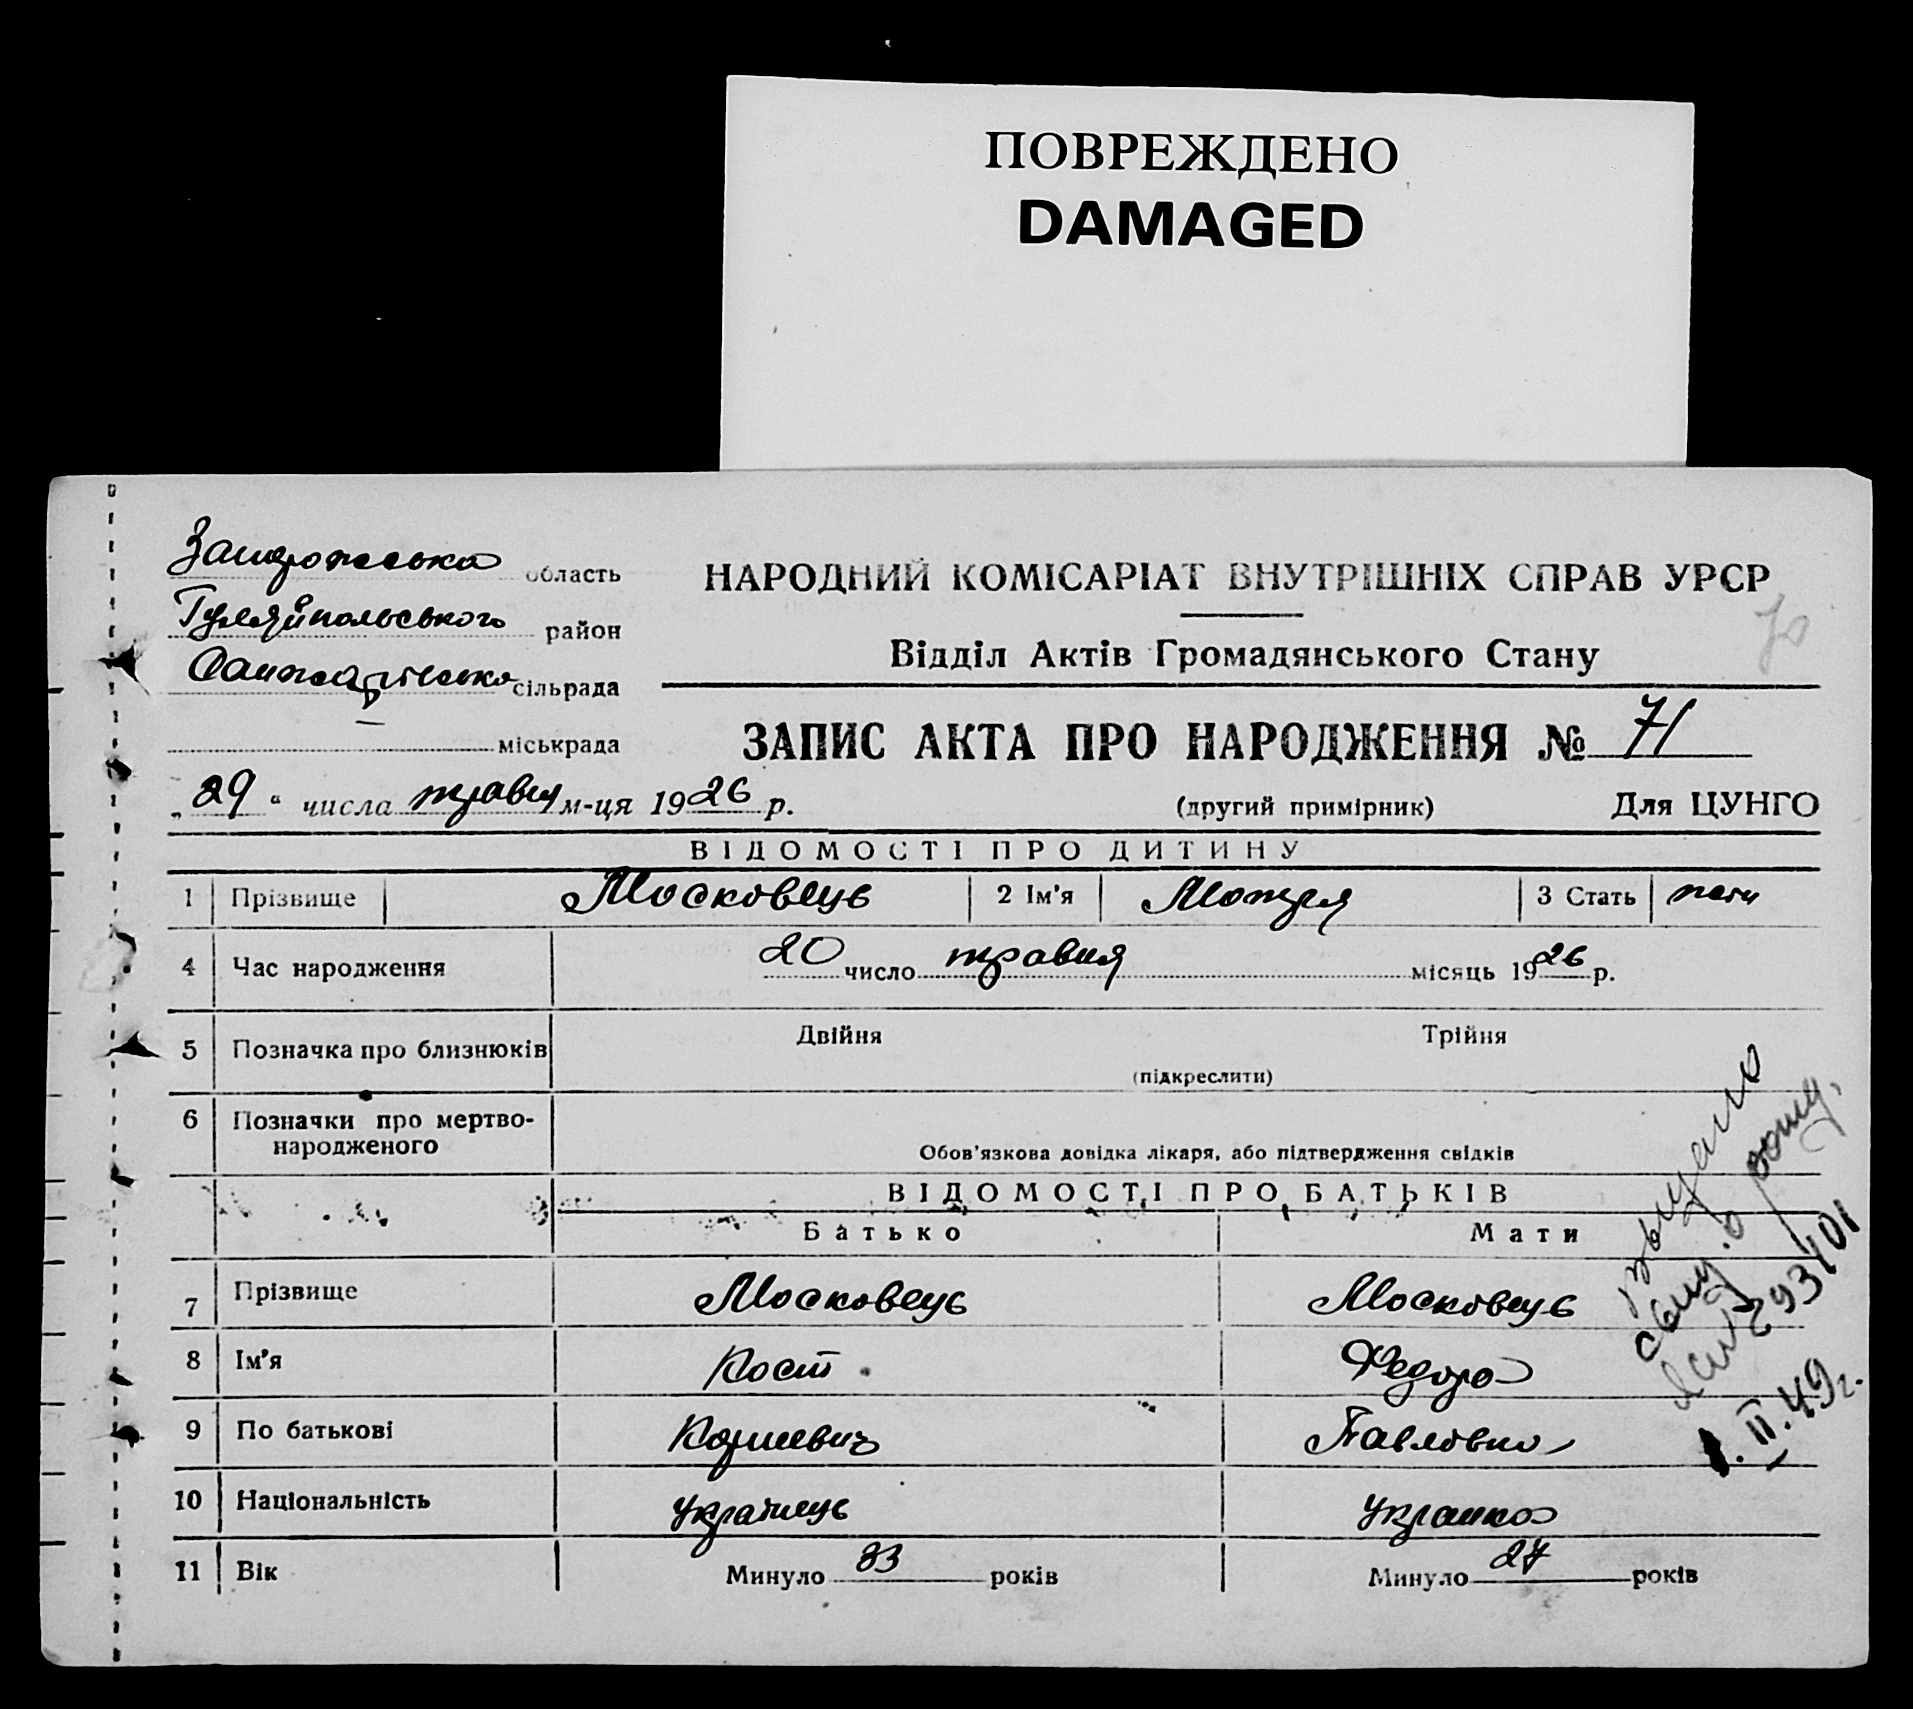 ПОВРЕЖДЕНО
DAMAGED
Запорожська область
Гуляйпольського район
сільрада
міськрада
НАРОДНИЙ КОМІСАРІАТ ВНУТРІШНІХ СПРАВ УРСР
70
Відділ Актів Громадянського Стану
ЗАПИС АКТА ПРО НАРОДЖЕННЯ № 71
„29“ числа травня м-ця 1926 р.
(другий примірник) Для ЦУНГО
ВІДОМОСТІ ПРО ДИТИНУ
1 Прізвище Московець 2 Ім'я Мотря 3 Стать
4 Час народження 20 число травня місяць 1926 р.
5 Позначка про близнюків Двійня Трійня
(підкреслити)
6 Позначки про мертво-
народженого
Обов'язкова довідка лікаря, або підтвердження свідків
ВІДОМОСТІ ПРО БАТЬКІВ
Батько Мати
7 Прізвище Московець Московець
8 Ім'я Кост Федора
9 По батькові Корнієвич Павловна
10 Національність українець украинка
11 Вік Минуло 33 років Минуло 27 років
выдано
свид. о рожд.
293101
1.II.49г.